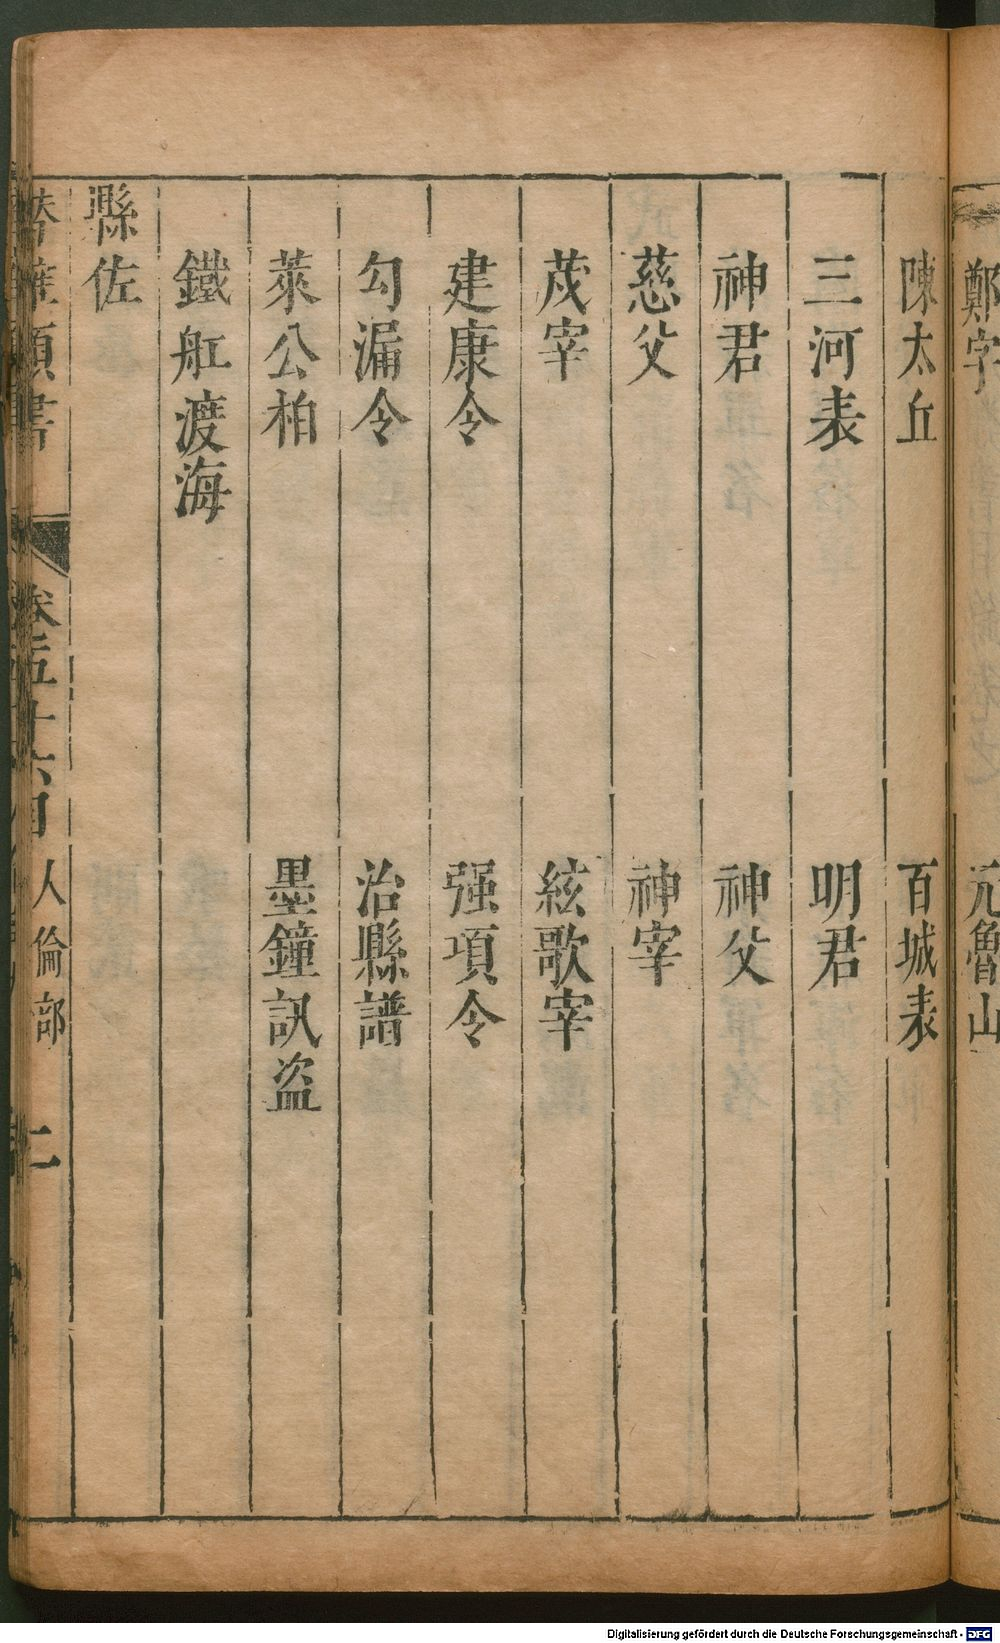 鄭字
元魯山
陳太丘
百城表
三河表
明君
神君
神父
慈父
神宰
茂宰
絃歌宰
建康令
强項令
勾漏令
治縣譜
萊公柏
墨鐘訊盜
鐵舡渡海
縣佐
類書
卷五十六目
人倫部
二
Digitalisierung gefördert durch die Deutsche Forschungsgemeinschaft - DFG